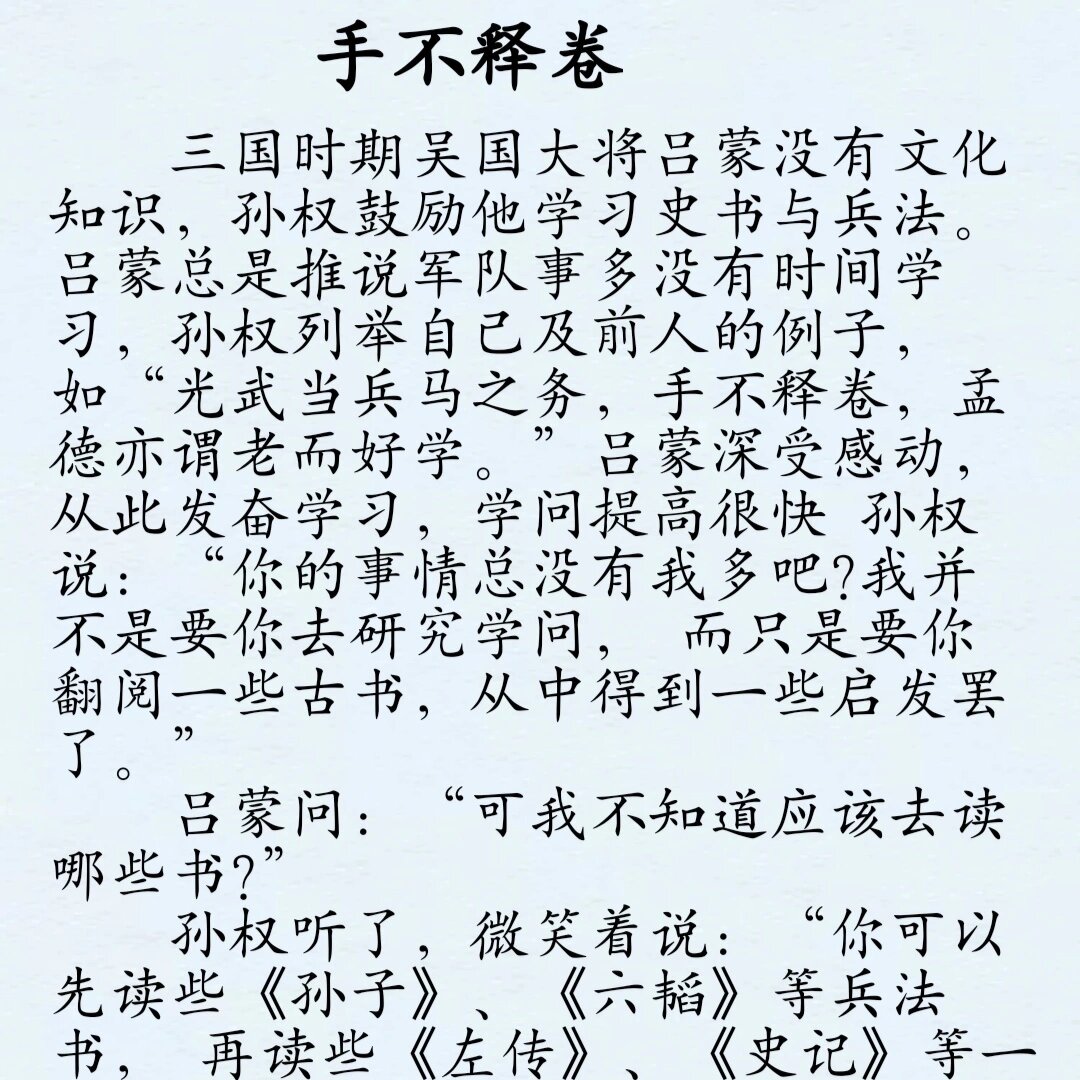 手不释卷
三国时期吴国大将吕蒙没有文化
知识，孙权鼓励他学习史书与兵法。
吕蒙总是推说军队事多没有时间学
习，孙权列举自己及前人的例子，
如“光武当兵马之务，手不释卷，孟
德亦谓老而好学。” 吕蒙深受感动，
从此发奋学习，学问提高很快 孙权
说：“你的事情总没有我多吧?我并
不是要你去研究学问， 而只是要你
翻阅一些古书，从中得到一些启发罢
了。”
吕蒙问：“可我不知道应该去读
哪些书?”
孙权听了，微笑着说：“你可以
先读些《孙子》、《六韬》等兵法
书， 再读些《左传》、《史记》等一